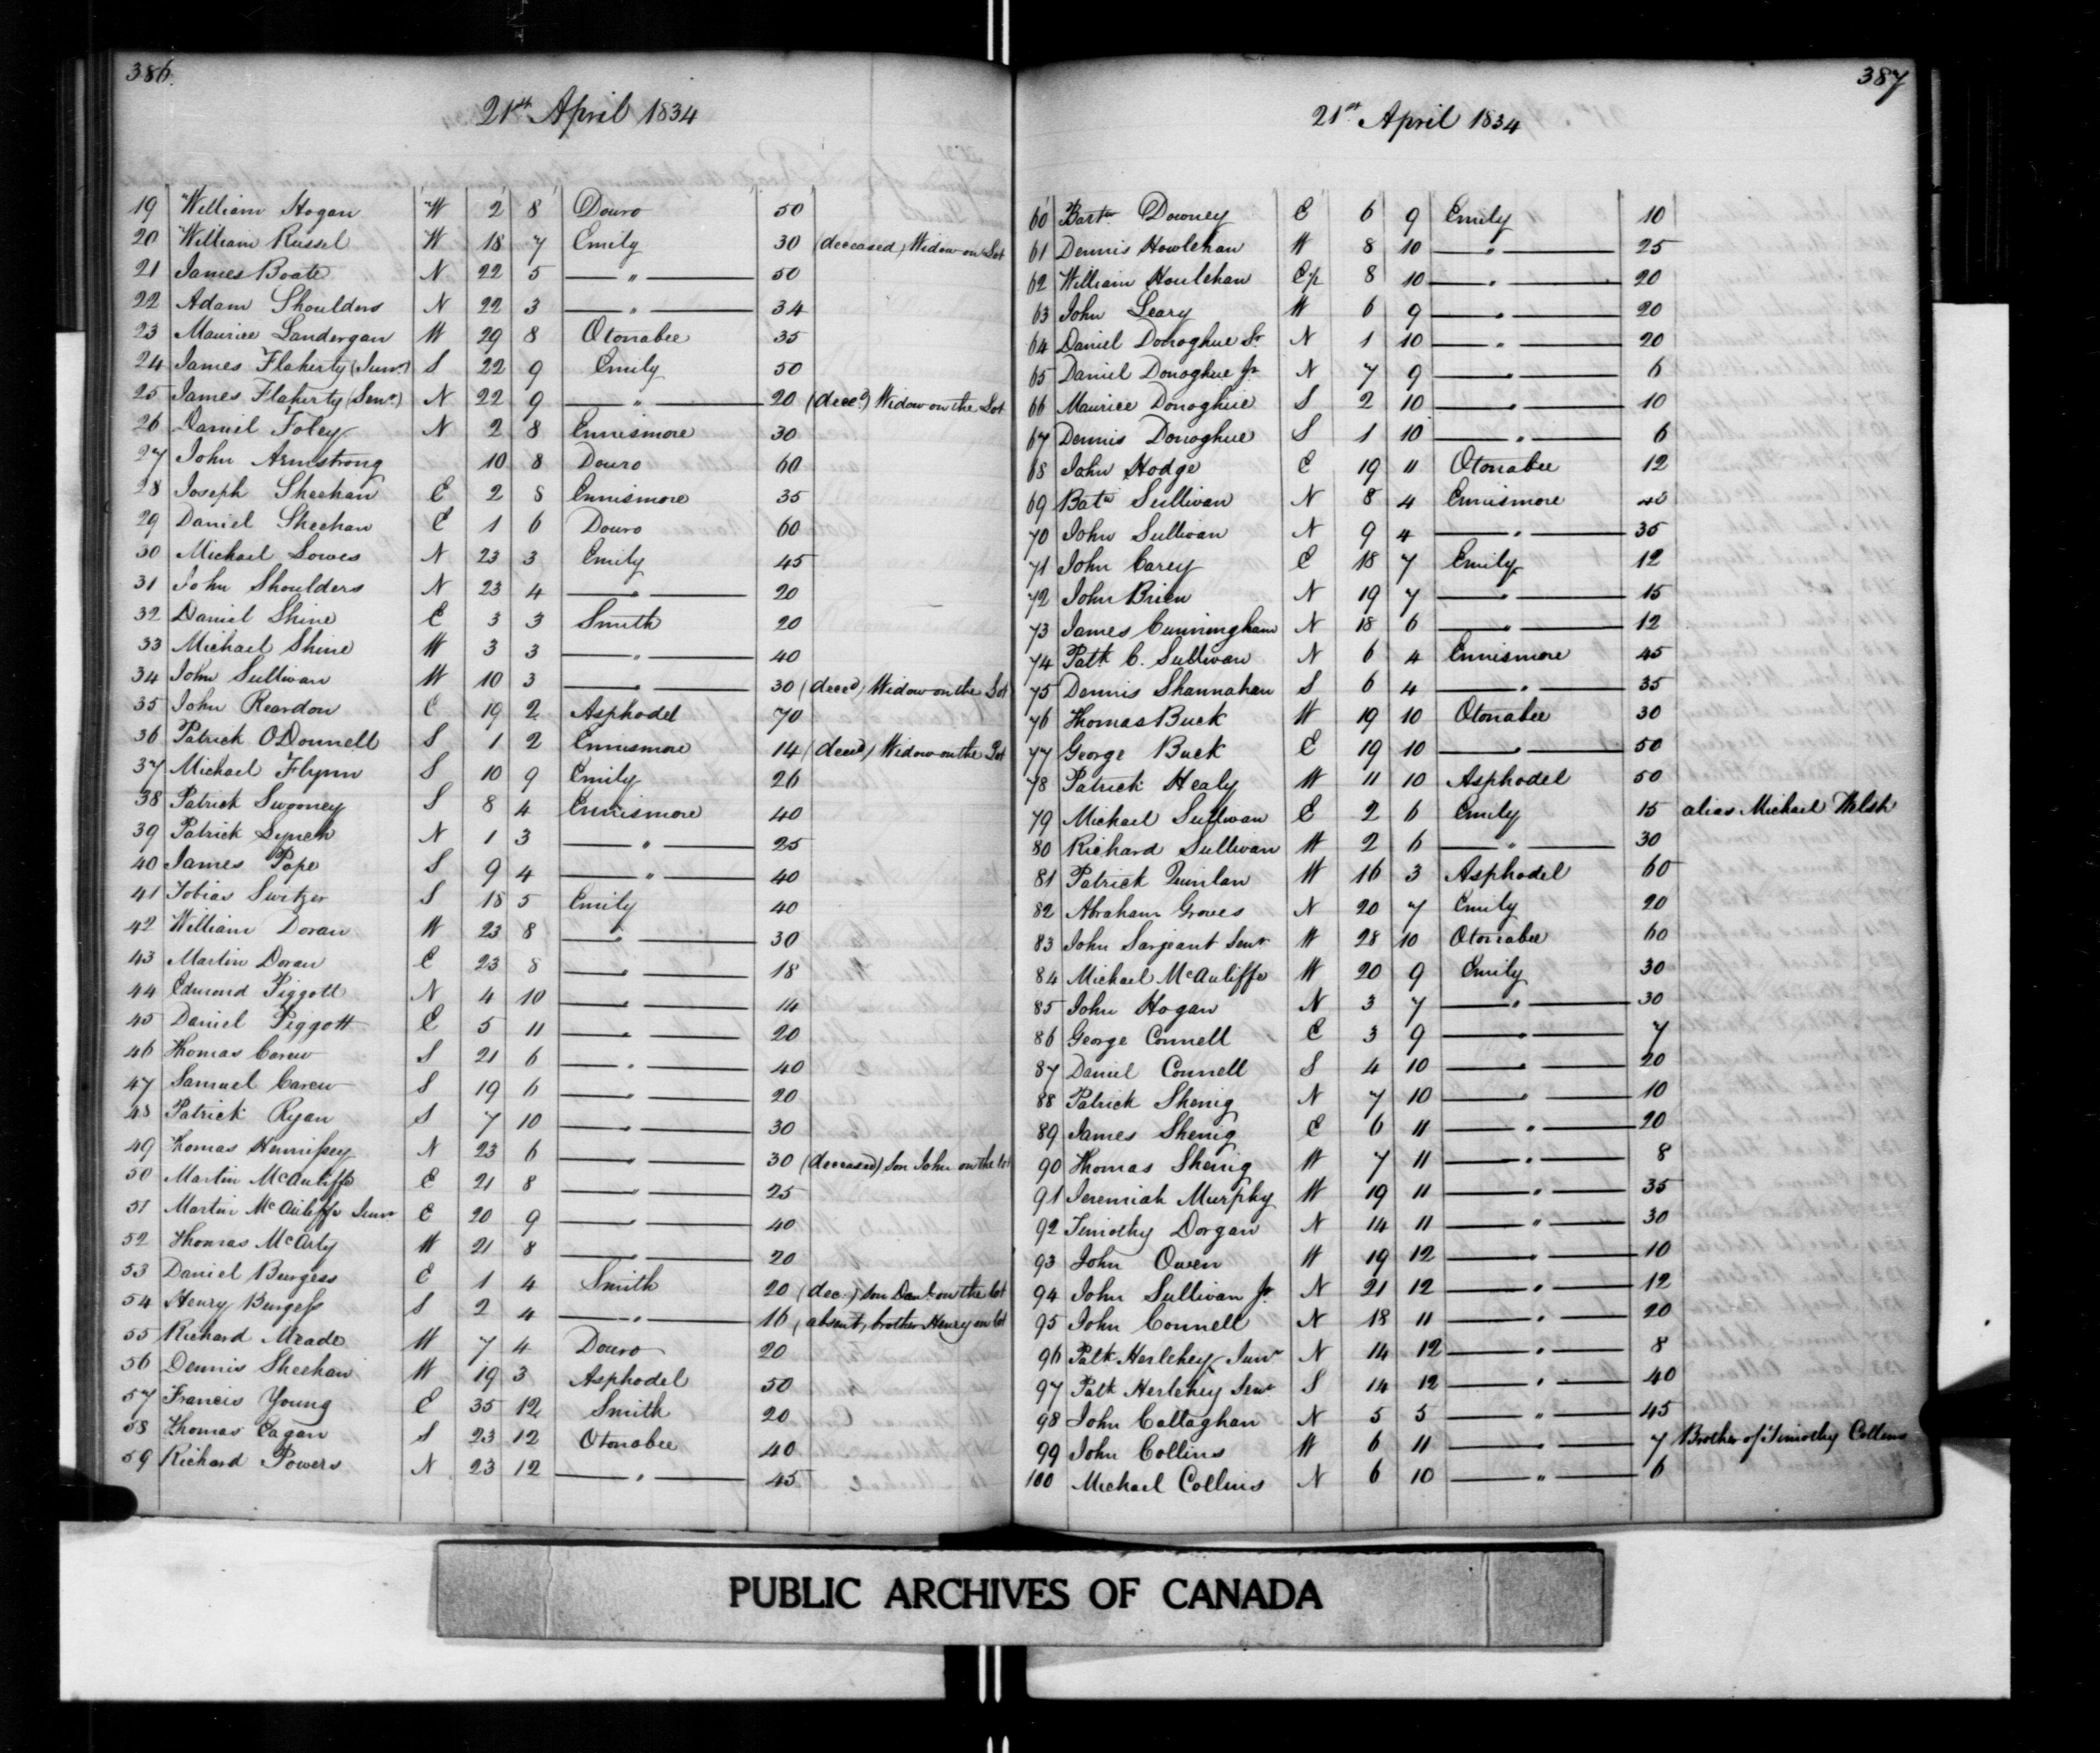 386.
21st April 1834
19 William Hogan W 2 8 Douro 50
20 William Russel W 18 7 Emily 30 (deceased) Widow on Lot
21 James Boate N 22 5 " 50
22 Adam Shoulders N 22 3 " 34
23 Maurice Landergan W 29 8 Otonabee 35
24 James Flaherty (Junr) S 22 9 Emily 50
25 James Flaherty (Senr) N 22 9 " 20 (decd) Widow on the Lot
26 Daniel Foley N 2 8 Ennismore 30
27 John Armstrong 10 8 Douro 60
28 Joseph Sheehan E 2 8 Ennismore 35
29 Daniel Sheehan E 1 6 Douro 60
30 Michael Lowes N 23 3 Emily 45
31 John Shoulders N 23 4 " 20
32 Daniel Shine E 3 3 Smith 20
33 Michael Shine W 3 3 " 40
34 John Sullivan W 10 3 " 30 (decd) Widow on the Lot
35 John Reardon E 19 2 Asphodel 70
36 Patrick ODonnell S 1 2 Ennismore 14 (decd) Widow on the Lot
37 Michael Flynn S 10 9 Emily 26
38 Patrick Swooney S 8 4 Ennismore 40
39 Patrick Lynch N 1 3 " 25
40 James Pope S 9 4 " 40
41 Tobias Switzer S 18 5 Emily 40
42 William Doran W 23 8 " 30
43 Martin Doran E 23 8 " 18
44 Edmond Piggott N 4 10 " 14
45 Daniel Piggott E 5 11 " 20
46 Thomas Carew S 21 6 " 40
47 Samuel Carew S 19 6 " 20
48 Patrick Ryan S 7 10 " 30
49 Thomas Hennissey N 23 6 " 30 (deceased) Son John on the lot
50 Martin McAuliffe E 21 8 " 25
51 Martin McAuliffe Junr E 20 9 " 40
52 Thomas McArty W 21 8 " 20
53 Daniel Burgess E 1 4 Smith 20 (dec.) Son Danl on the lot
54 Henry Burgess S 2 4 " 16 (absent, brother Henry on lot
55 Richard Meade W 7 4 Douro 20
56 Dennis Sheehan W 19 3 Asphodel 50
57 Francis Young E 35 12 Smith 20
58 Thomas Eagan S 23 12 Otonabee 40
59 Richard Powers N 23 12 " 45
387
21st April 1834
60 Bartw Downey E 6 9 Emily 10
61 Dennis Howlehan W 8 10 " 25
62 William Houlehan E p 8 10 " 20
63 John Leary W 6 9 " 20
64 Daniel Donoghue Sr N 1 10 " 20
65 Daniel Donoghue Jr N 7 9 " 6
66 Maurice Donoghue S 2 10 " 10
67 Dennis Donoghue S 1 10 " 6
68 John Hodge E 19 11 Otonabee 12
69 Batw Sullivan N 8 4 Ennismore 40
70 John Sullivan N 9 4 " 35
71 John Carey E 18 7 Emily 12
72 John Brien N 19 7 " 15
73 James Cunningham N 18 6 " 12
74 Patk C. Sullivan N 6 4 Ennismore 45
75 Dennis Shannahan S 6 4 " 35
76 Thomas Buck W 19 10 Otonabee 30
77 George Buck E 19 10 " 50
78 Patrick Healy W 11 10 Asphodel 50
79 Michael Sullivan E 2 6 Emily 15 alias Michael Welsh
80 Richard Sullivan W 2 6 " 30
81 Patrick Quinlan W 16 3 Asphodel 60
82 Abraham Groves N 20 7 Emily 20
83 John Sargeant Senr W 28 10 Otonabee 60
84 Michael McAuliffe W 20 9 Emily 30
85 John Hogan N 3 7 " 30
86 George Connell E 3 9 " 7
87 Daniel Connell S 4 10 " 20
88 Patrick Shenig N 7 10 " 10
89 James Shenig E 6 11 " 20
90 Thomas Shenig W 7 11 " 8
91 Jeremiah Murphy W 19 11 " 35
92 Timothy Dorgan N 14 11 " 30
93 John Owen W 19 12 " 10
94 John Sullivan Jr N 21 12 " 12
95 John Connell N 18 11 " 20
96 Patk Herlehey Junr N 14 12 " 8
97 Patk Herlehey Senr S 14 12 " 40
98 John Callaghan N 5 5 " 45
99 John Collins W 6 11 " 7 Brother of Timothy Collins
100 Michael Collins N 6 10 " 6
PUBLIC ARCHIVES OF CANADA